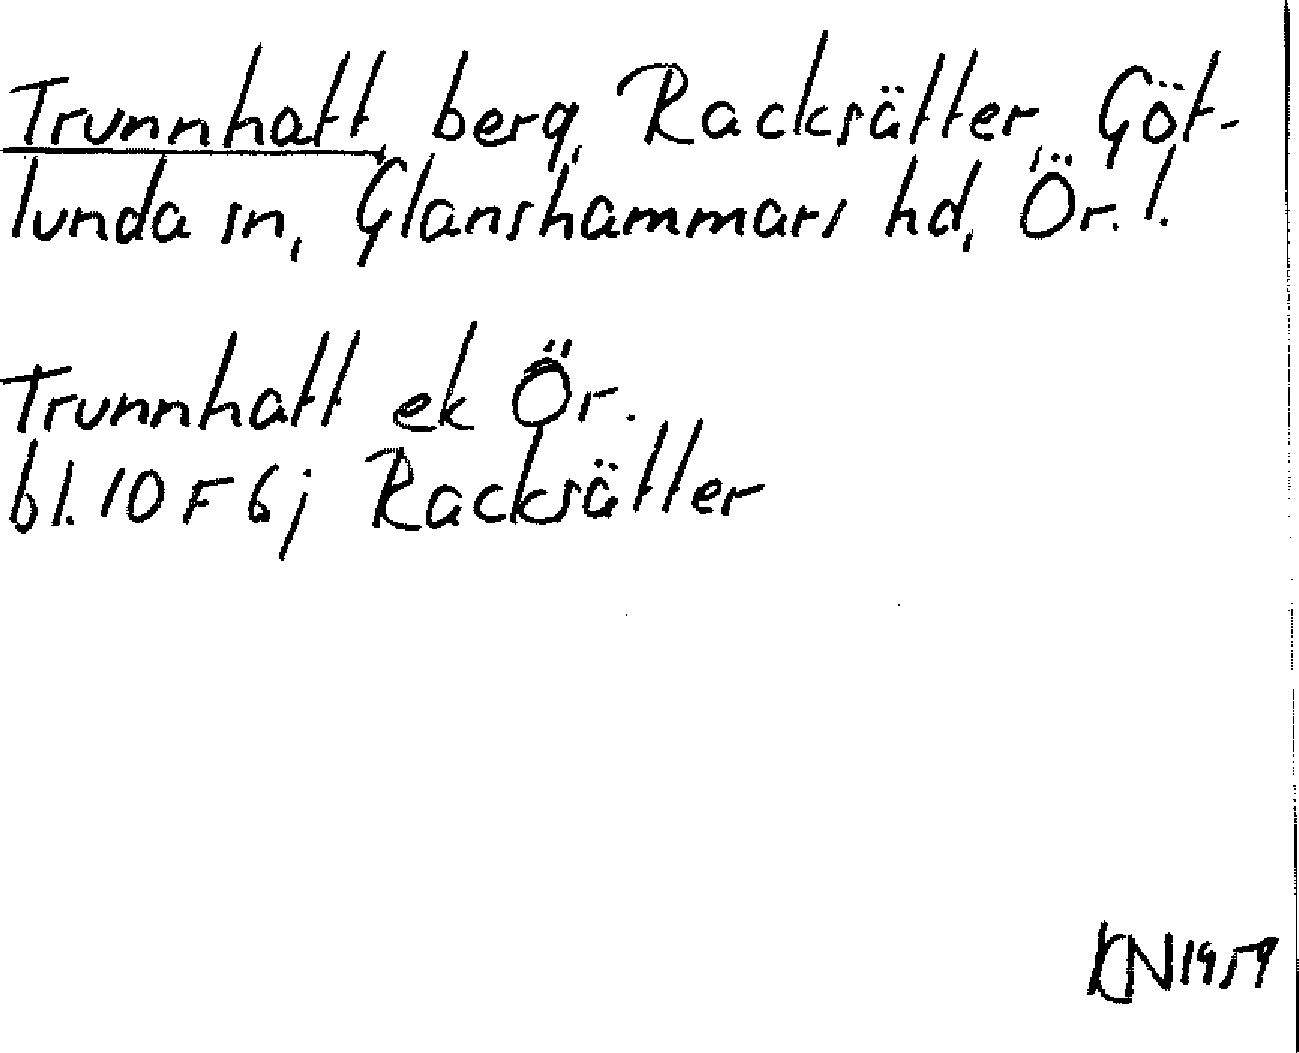 Trunnhatt berg, Racksätter, Göt-
lunda sn, Glanshammars hd, Ör. l.
Trunnhatt ek Ör.
bl. 10 F 6j Racksätter
KN 1959